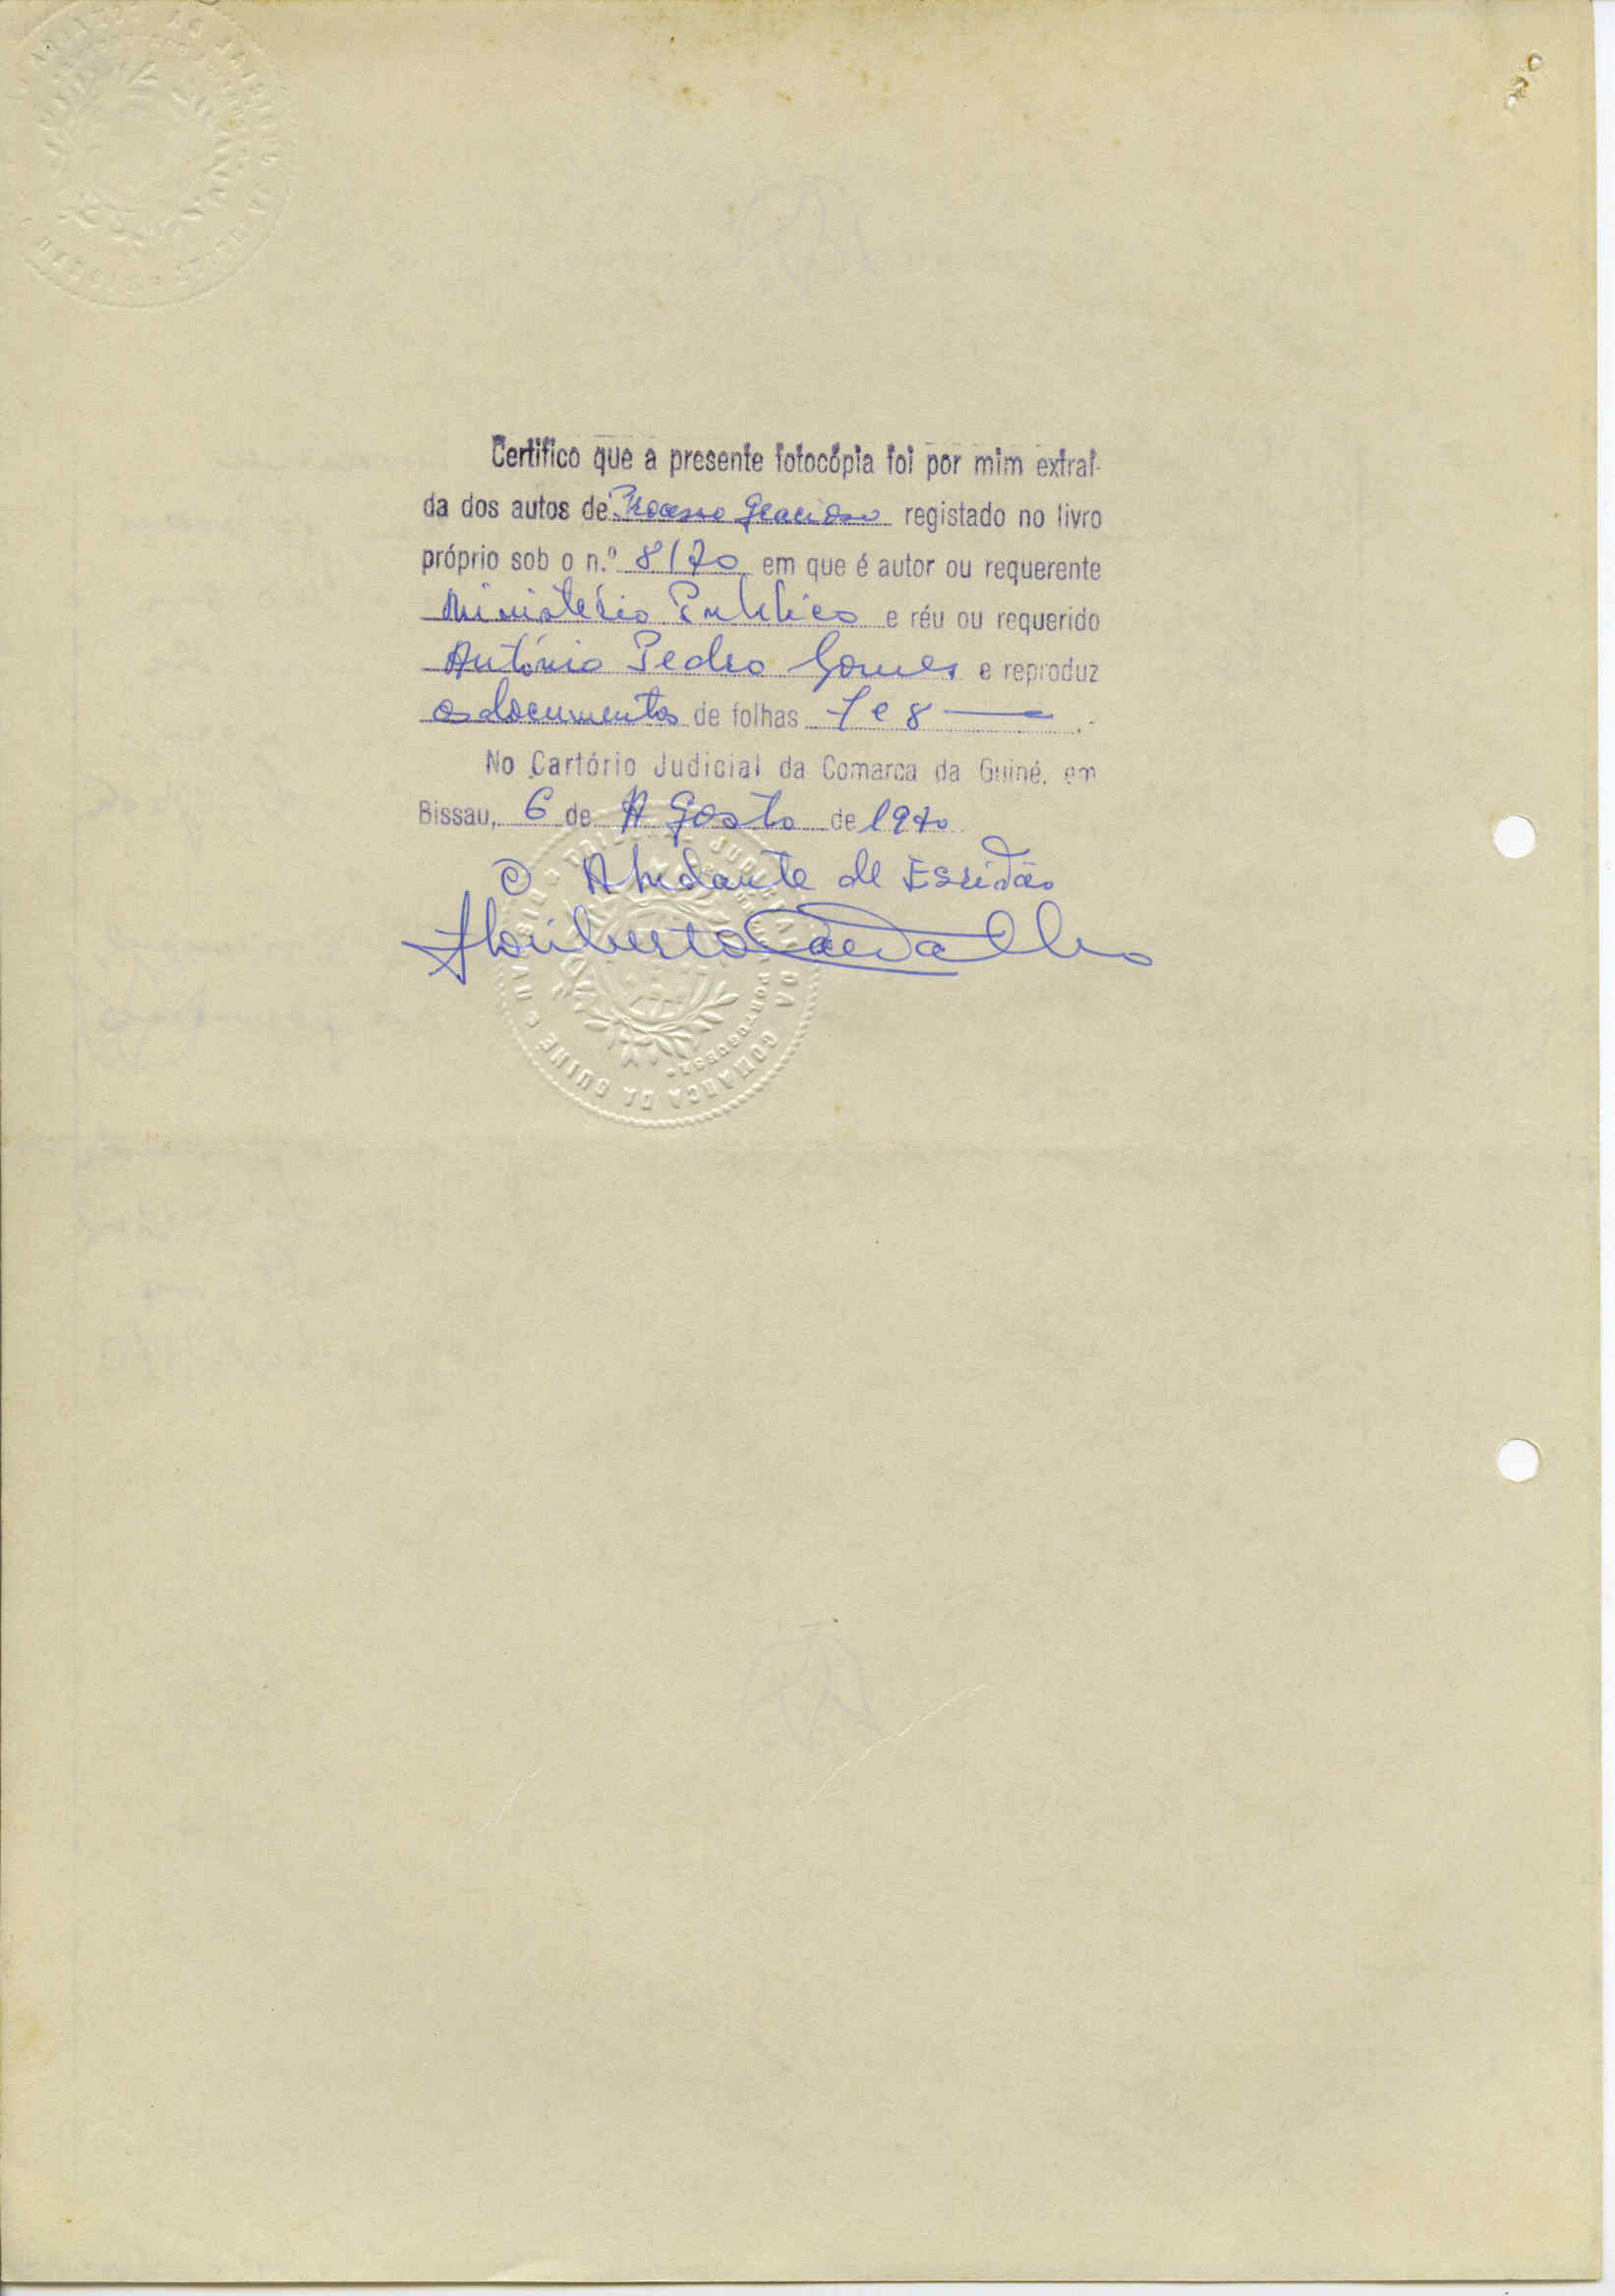 Certifico que a presente fotocópia foi por mim extraí-
da dos autos de Processo Gracioso registado no livro
próprio sob o n.º 8/70 em que é autor ou requerente
Ministério Público e réu ou requerido
António Pedro Gomes e reproduz
os documentos de folhas 7 e 8
No Cartório Judicial da Comarca da Guiné, em
Bissau, 6 de Agosto de 1970
O Ajudante de Escrivão
Floriberto Carvalho
COMARCA DA GUINÉ